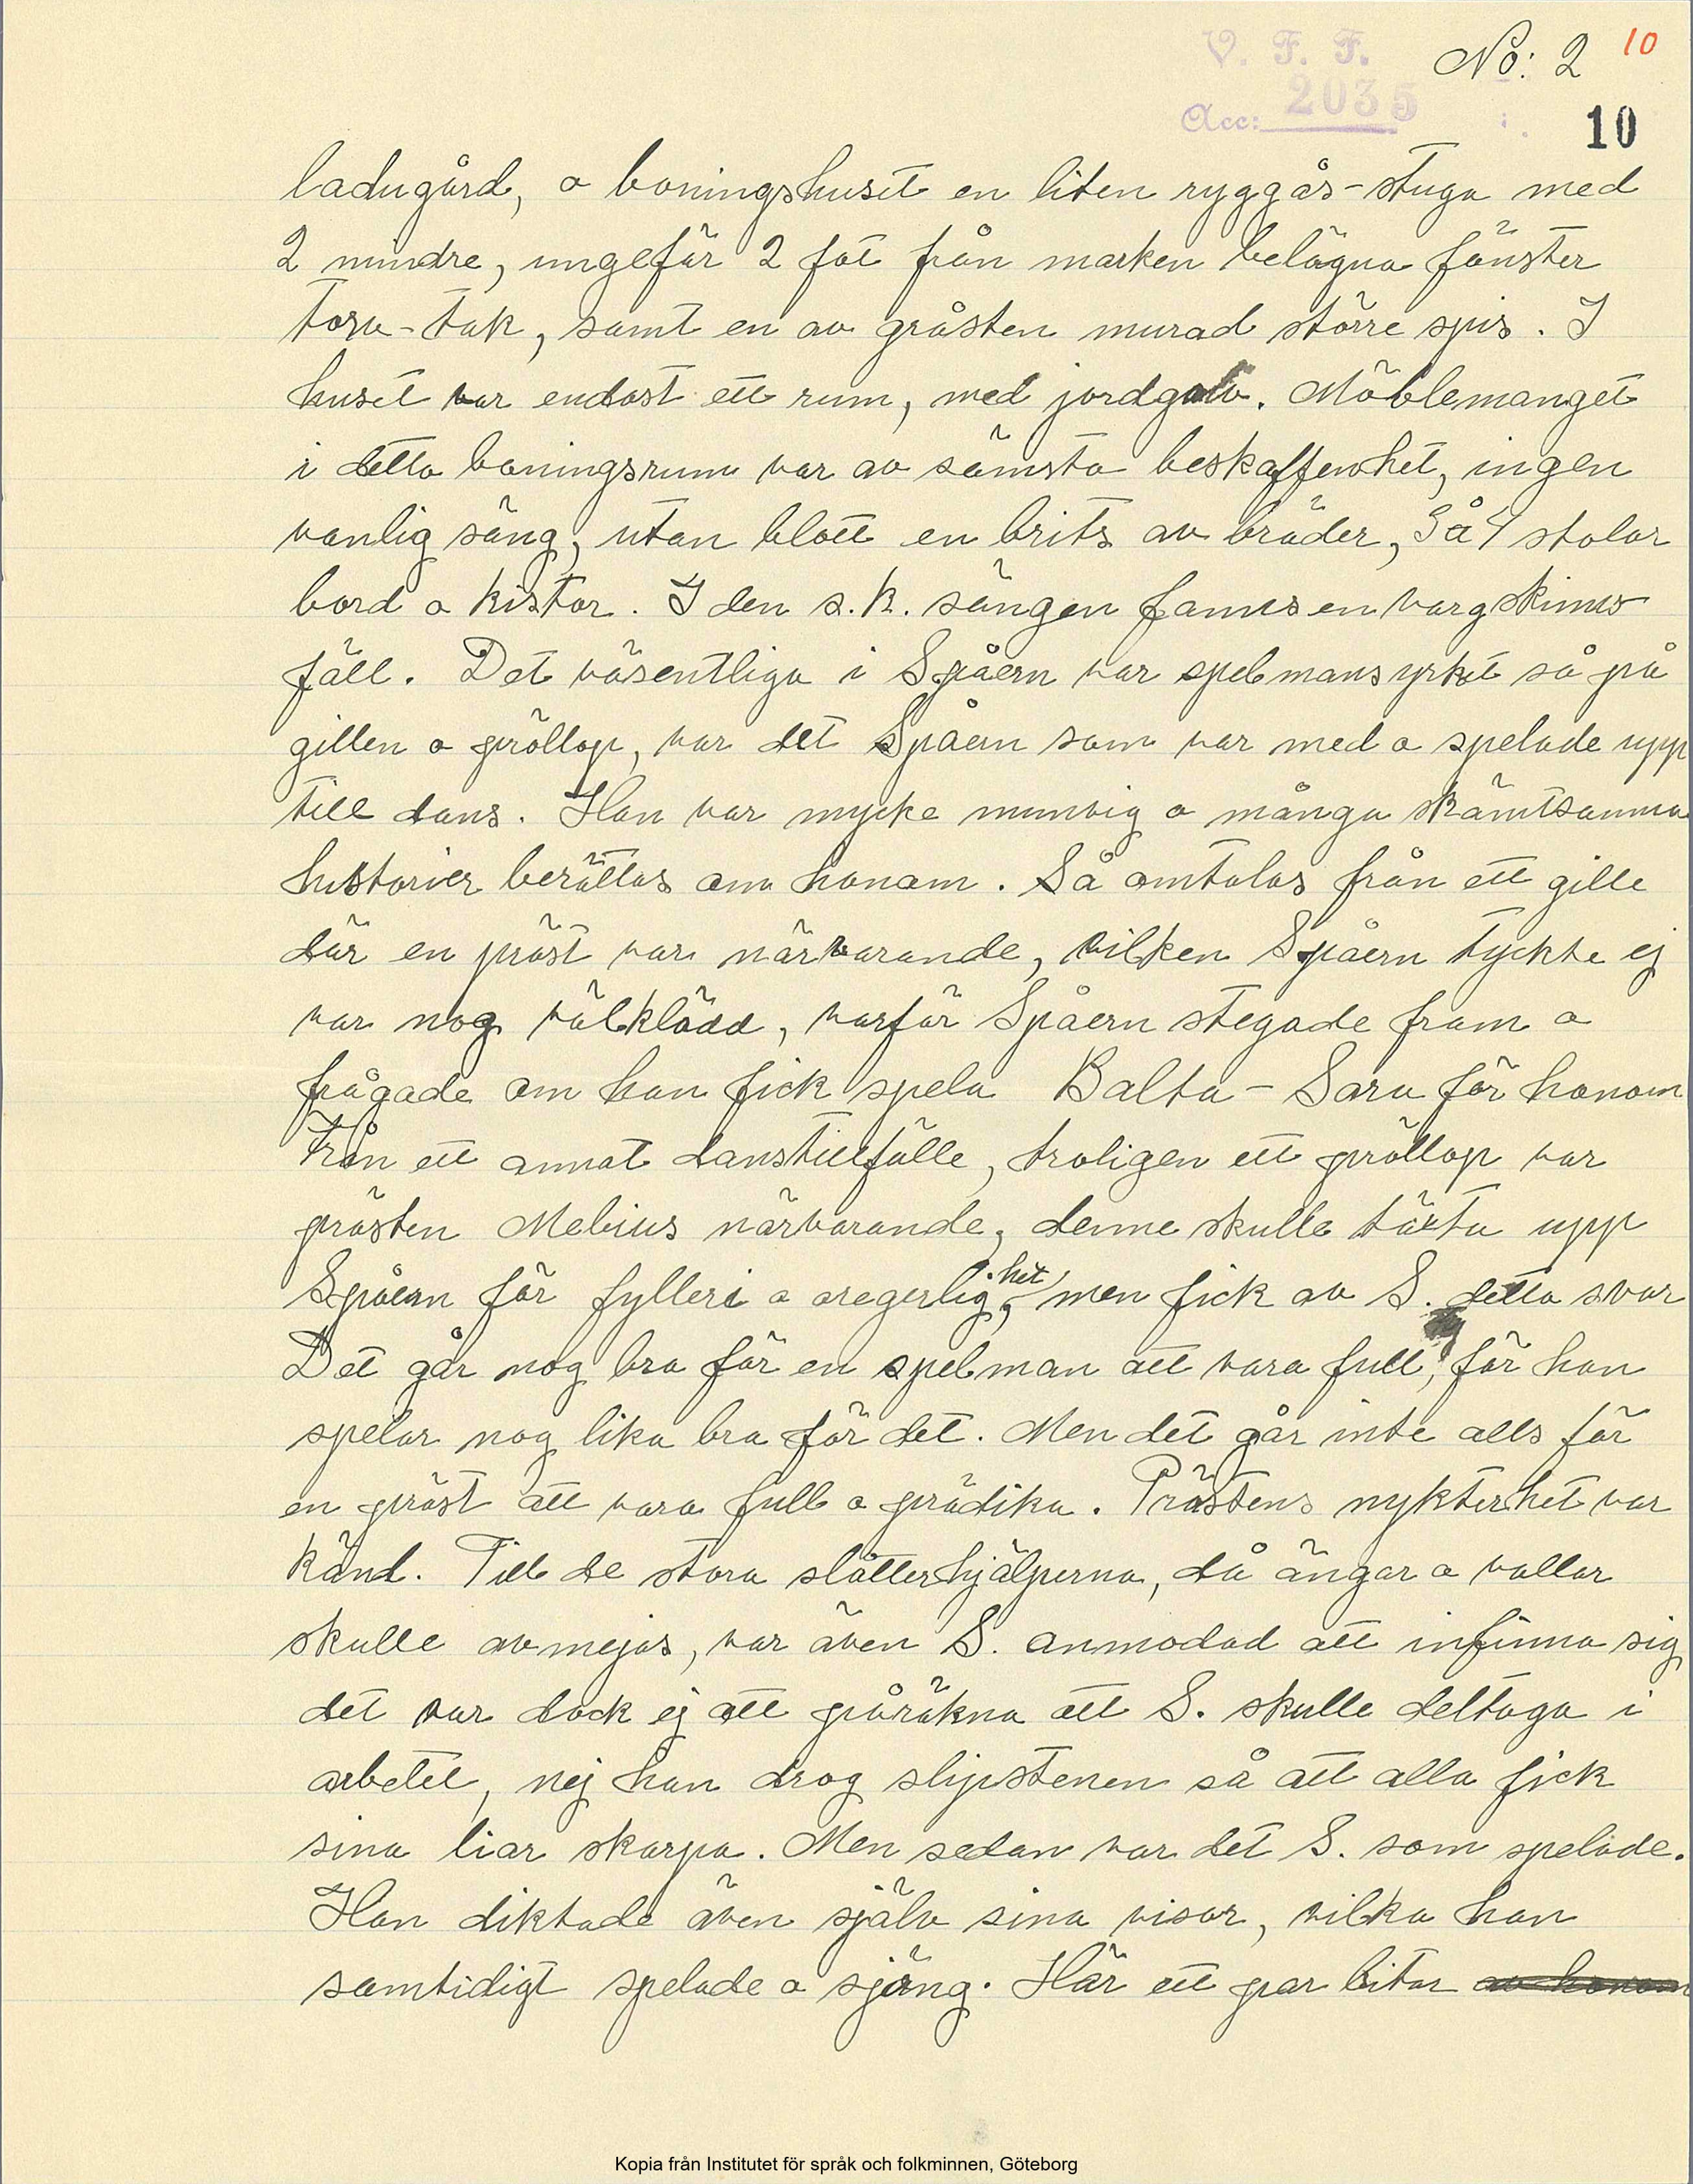 V. F. F.
No: 2 10
Acc: 2035
10
ladugård, o boningshuset en liten ryggås-stuga med
2 mindre, ungefär 2 fot från marken belägna fönster
torv-tak, samt en av gråsten murad större spis. I
huset var endast ett rum, med jordgolv. Möblemanget
i detta boningsrum var av sämsta beskaffenhet, ingen
vanlig säng, utan blott en brits av bräder, 3 à 4 stolar
bord o kistor. I den s.k. sängen fanns en vargskinns
fäll. Det väsentliga i Spåern var spelmansyrket så på
gillen o bröllop, var det Spåern som var med o spelade upp
till dans. Han var mycke munvig o många skämtsamma
historier berättas om honom. Så omtalas från ett gille
där en präst var närvarande, vilken Spåern tyckte ej
var nog välklädd, varför Spåern stegade fram o
frågade om han fick spela Balta-Sara för honom
Från ett annat danstillfälle, troligen ett bröllop var
prästen Mebius närvarande, denne skulle täxta upp
Spåern för fylleri o oregerlighet, men fick av S. detta svar
Det går nog bra för en spelman att vara full, för han
spelar nog lika bra för det. Men det går inte alls för
en präst att vara full o prädika. Prästens nykterhet var
känd. Till de stora slåtterhjälperna, då ängar o vallar
skulle avmejas, var även S. anmodad att infinna sig
det var dock ej att påräkna att S. skulle deltaga i
arbetet, nej han drog slipstenen så att alla fick
sina liar skarpa. Men sedan var det S. som spelade.
Han diktade även själv sina visor, vilka han
samtidigt spelade o sjöng. Här ett par bitar av honom
Kopia från Institutet för språk och folkminnen, Göteborg